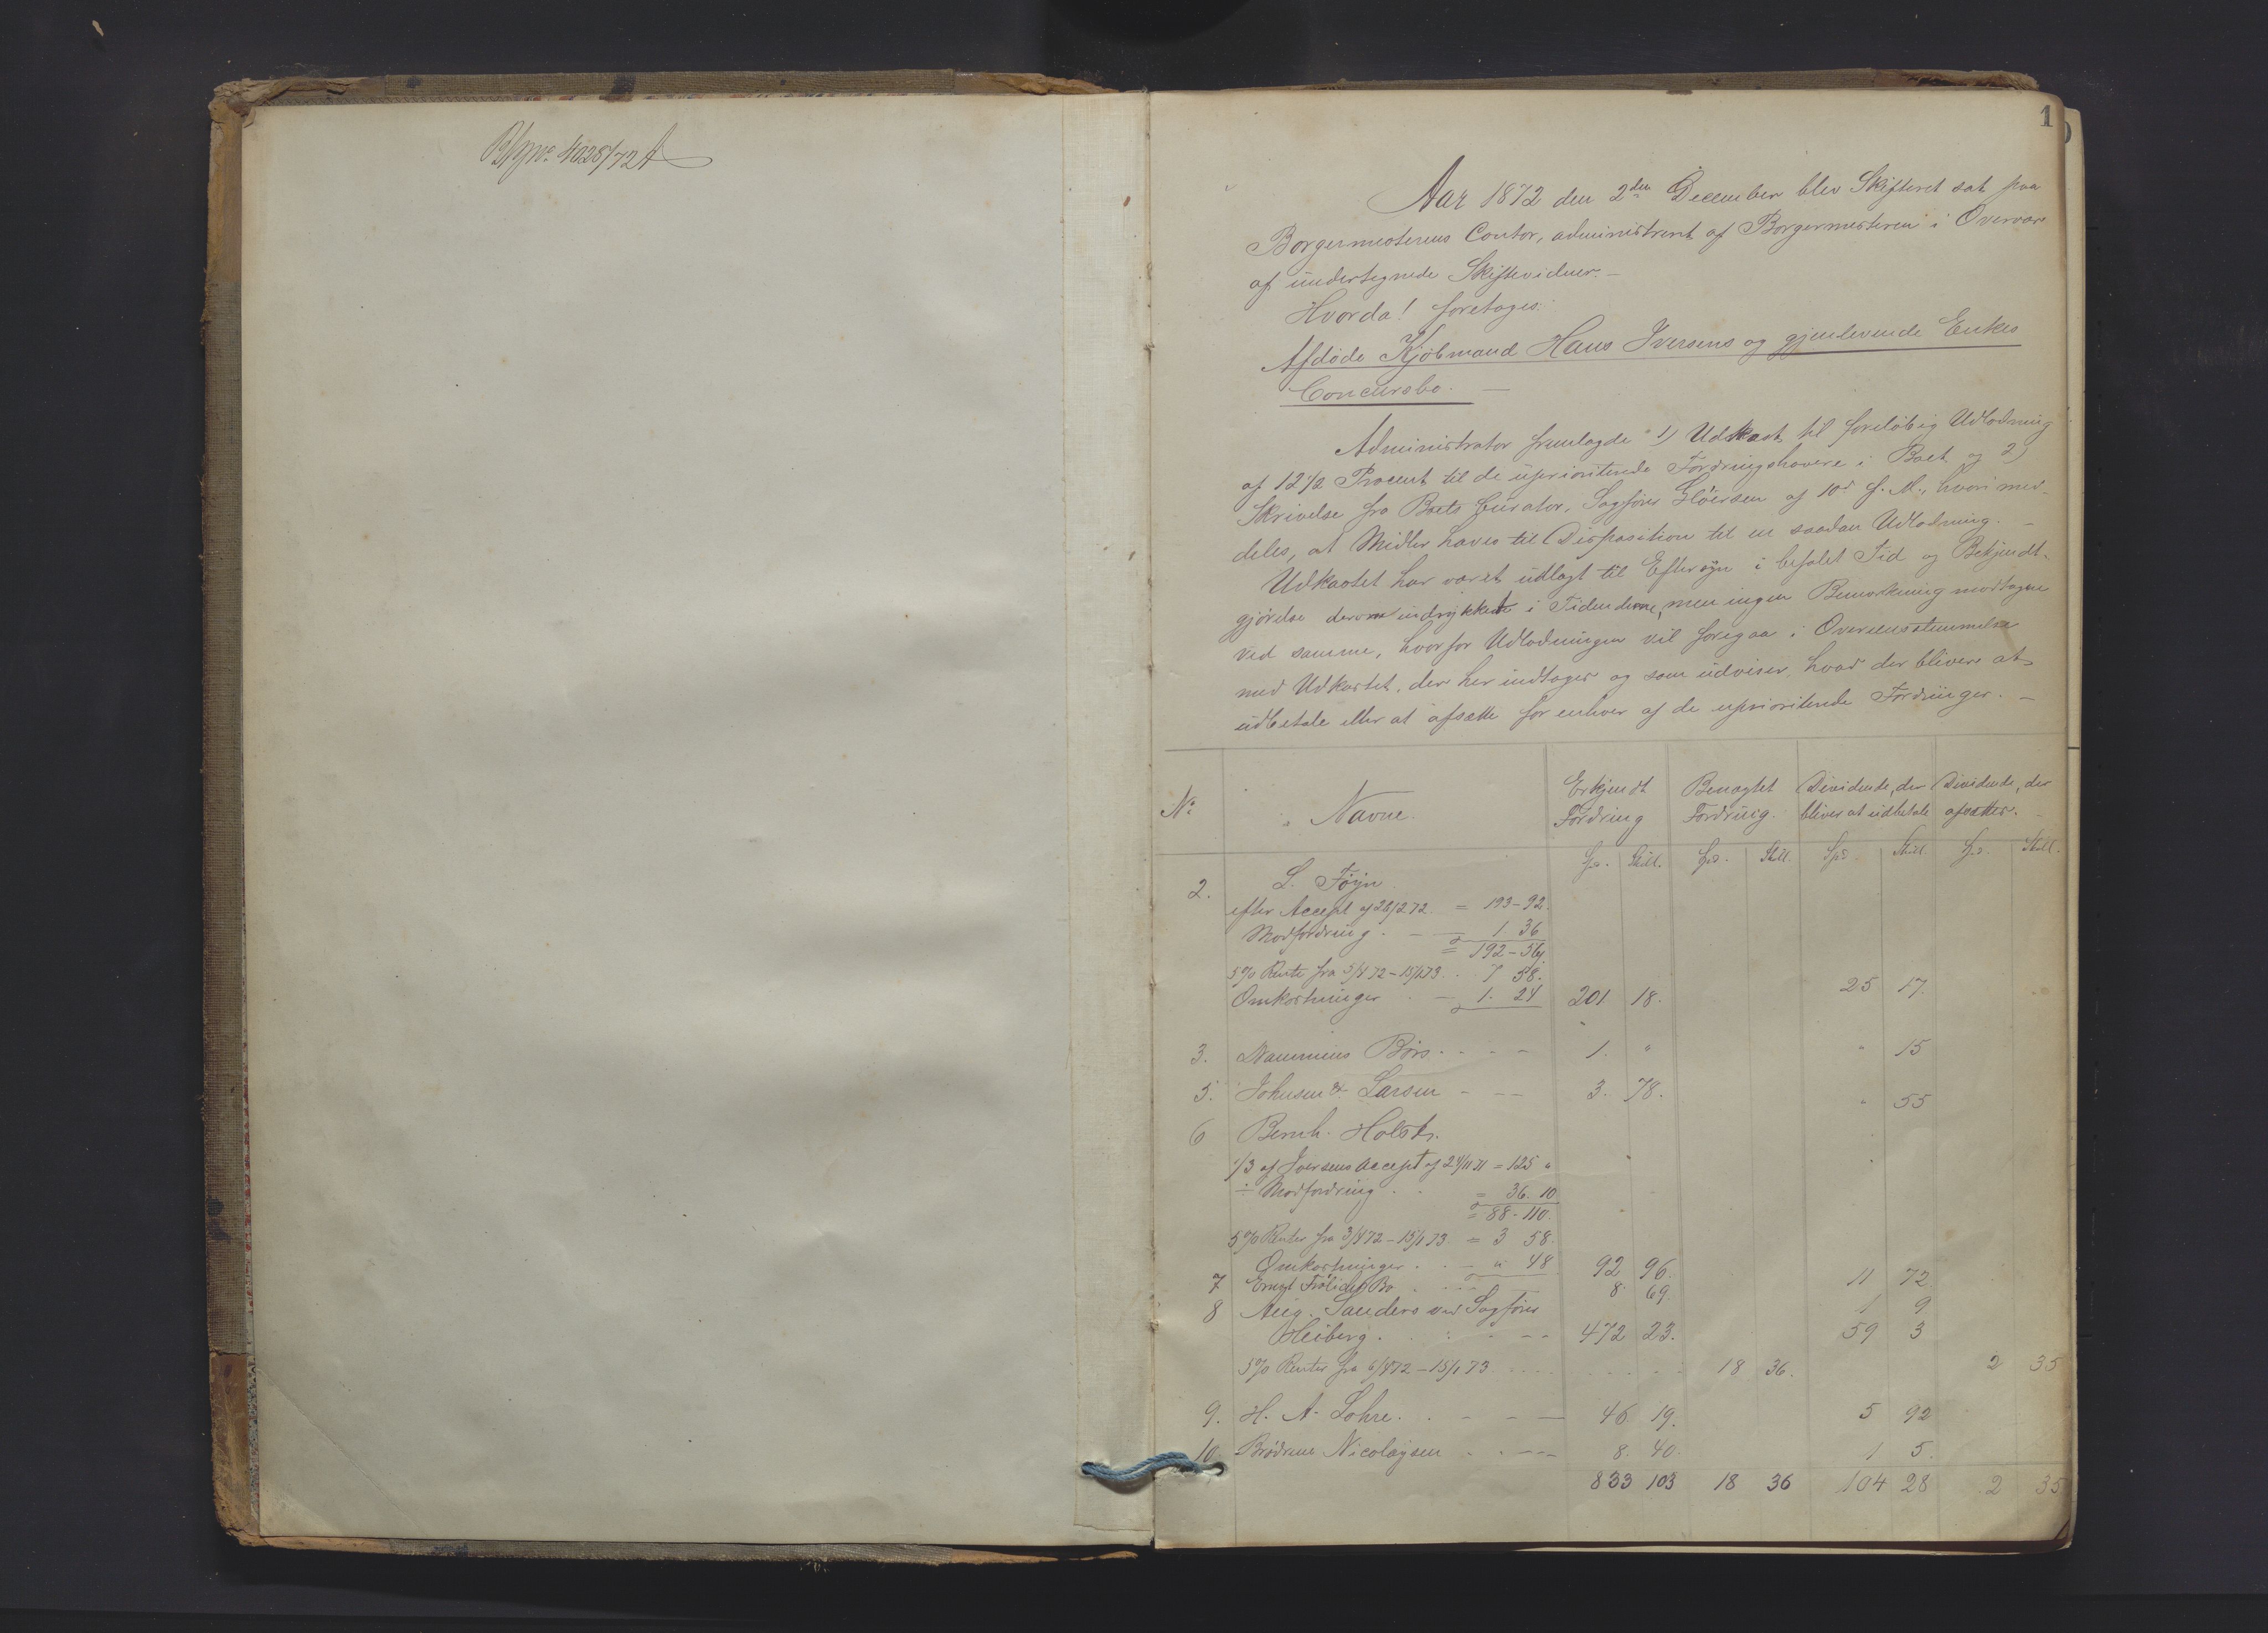 4028/72 A
1
Aar 1872 den 2den December blev Skifteret sat paa
Borgermesterens Contor, administreret af Borgermesteren i Overvær
af undertegnede Skiftevidner. —
Hvorda! foretoges:
Afdøde Kjøbmand Hans Iversens og gjenlevende Enkes
Concursbo. —
Administrator fremlagde 1) Udkast til foreløbig Udlodning
af 12 1/2 Procent til de uprioriterede Fordringshavere i Boet og 2)
Skrivelse fra Boets Curator, Sagfører Gløersen af 10d f. M., hvori med-
deles, at Midler haves til Disposition til en saadan Udlodning. —
Udkastet har været udlagt til Eftersyn i befalet Tid og Bekjendt-
gjørelse derom indrykket i Tidenderne, men ingen Bemærkning modtagen
ved samme, hvorfor Udlodningen vil foregaa i Overensstemmelse
med Udkastet, der her indtages og som udviser, hvad der bliver at
udbetale eller at afsætte for enhver af de uprioriterede Fordringer. —
No Navne. Erkjendt Fordring Benægtet Fordring. Dividende, der bliver at udbetale Dividende, der afsættes.
Spd. Skill. Spd. Skill. Spd. Skill. Spd. Skill.
2. L. Føyn
efter Accept af 28/2 72 = 193-92.
Modfordring . — 1 36
= 192-56
5% Rente fra 5/4 72 - 15/1 73 . . 7 58.
Omkostninger . — 1. 24 201 18. 25 17.
3. Nannines Børs . . — 1. " " 15
5. Johnsen & Larsen — — 3. 78. " 55
6 Bernh. Holst.
1/3 af Iversens Accept af 24/11 71 = 125 "
÷ Modfordring . . = 36. 10
= 88-110.
5% Renter fra 3/4 72 - 15/1 73 = 3 58.
Omkostninger . . — " 48 92 96. 11 72.
7 Bo 8. 69. 1 9
8 Aug. Sanders ved Sagfører
Heiberg . . . — 472 23. 59 3
5% Renter fra 6/4 72 - 15/1 73 . . . . 18 36. 2 35
9. H. A. Lohre . . — — 46 19. 5 92
10. Brødrene Nicolaysen . . — 8. 40. 1 5.
833 103 18 36 104 28 2 35